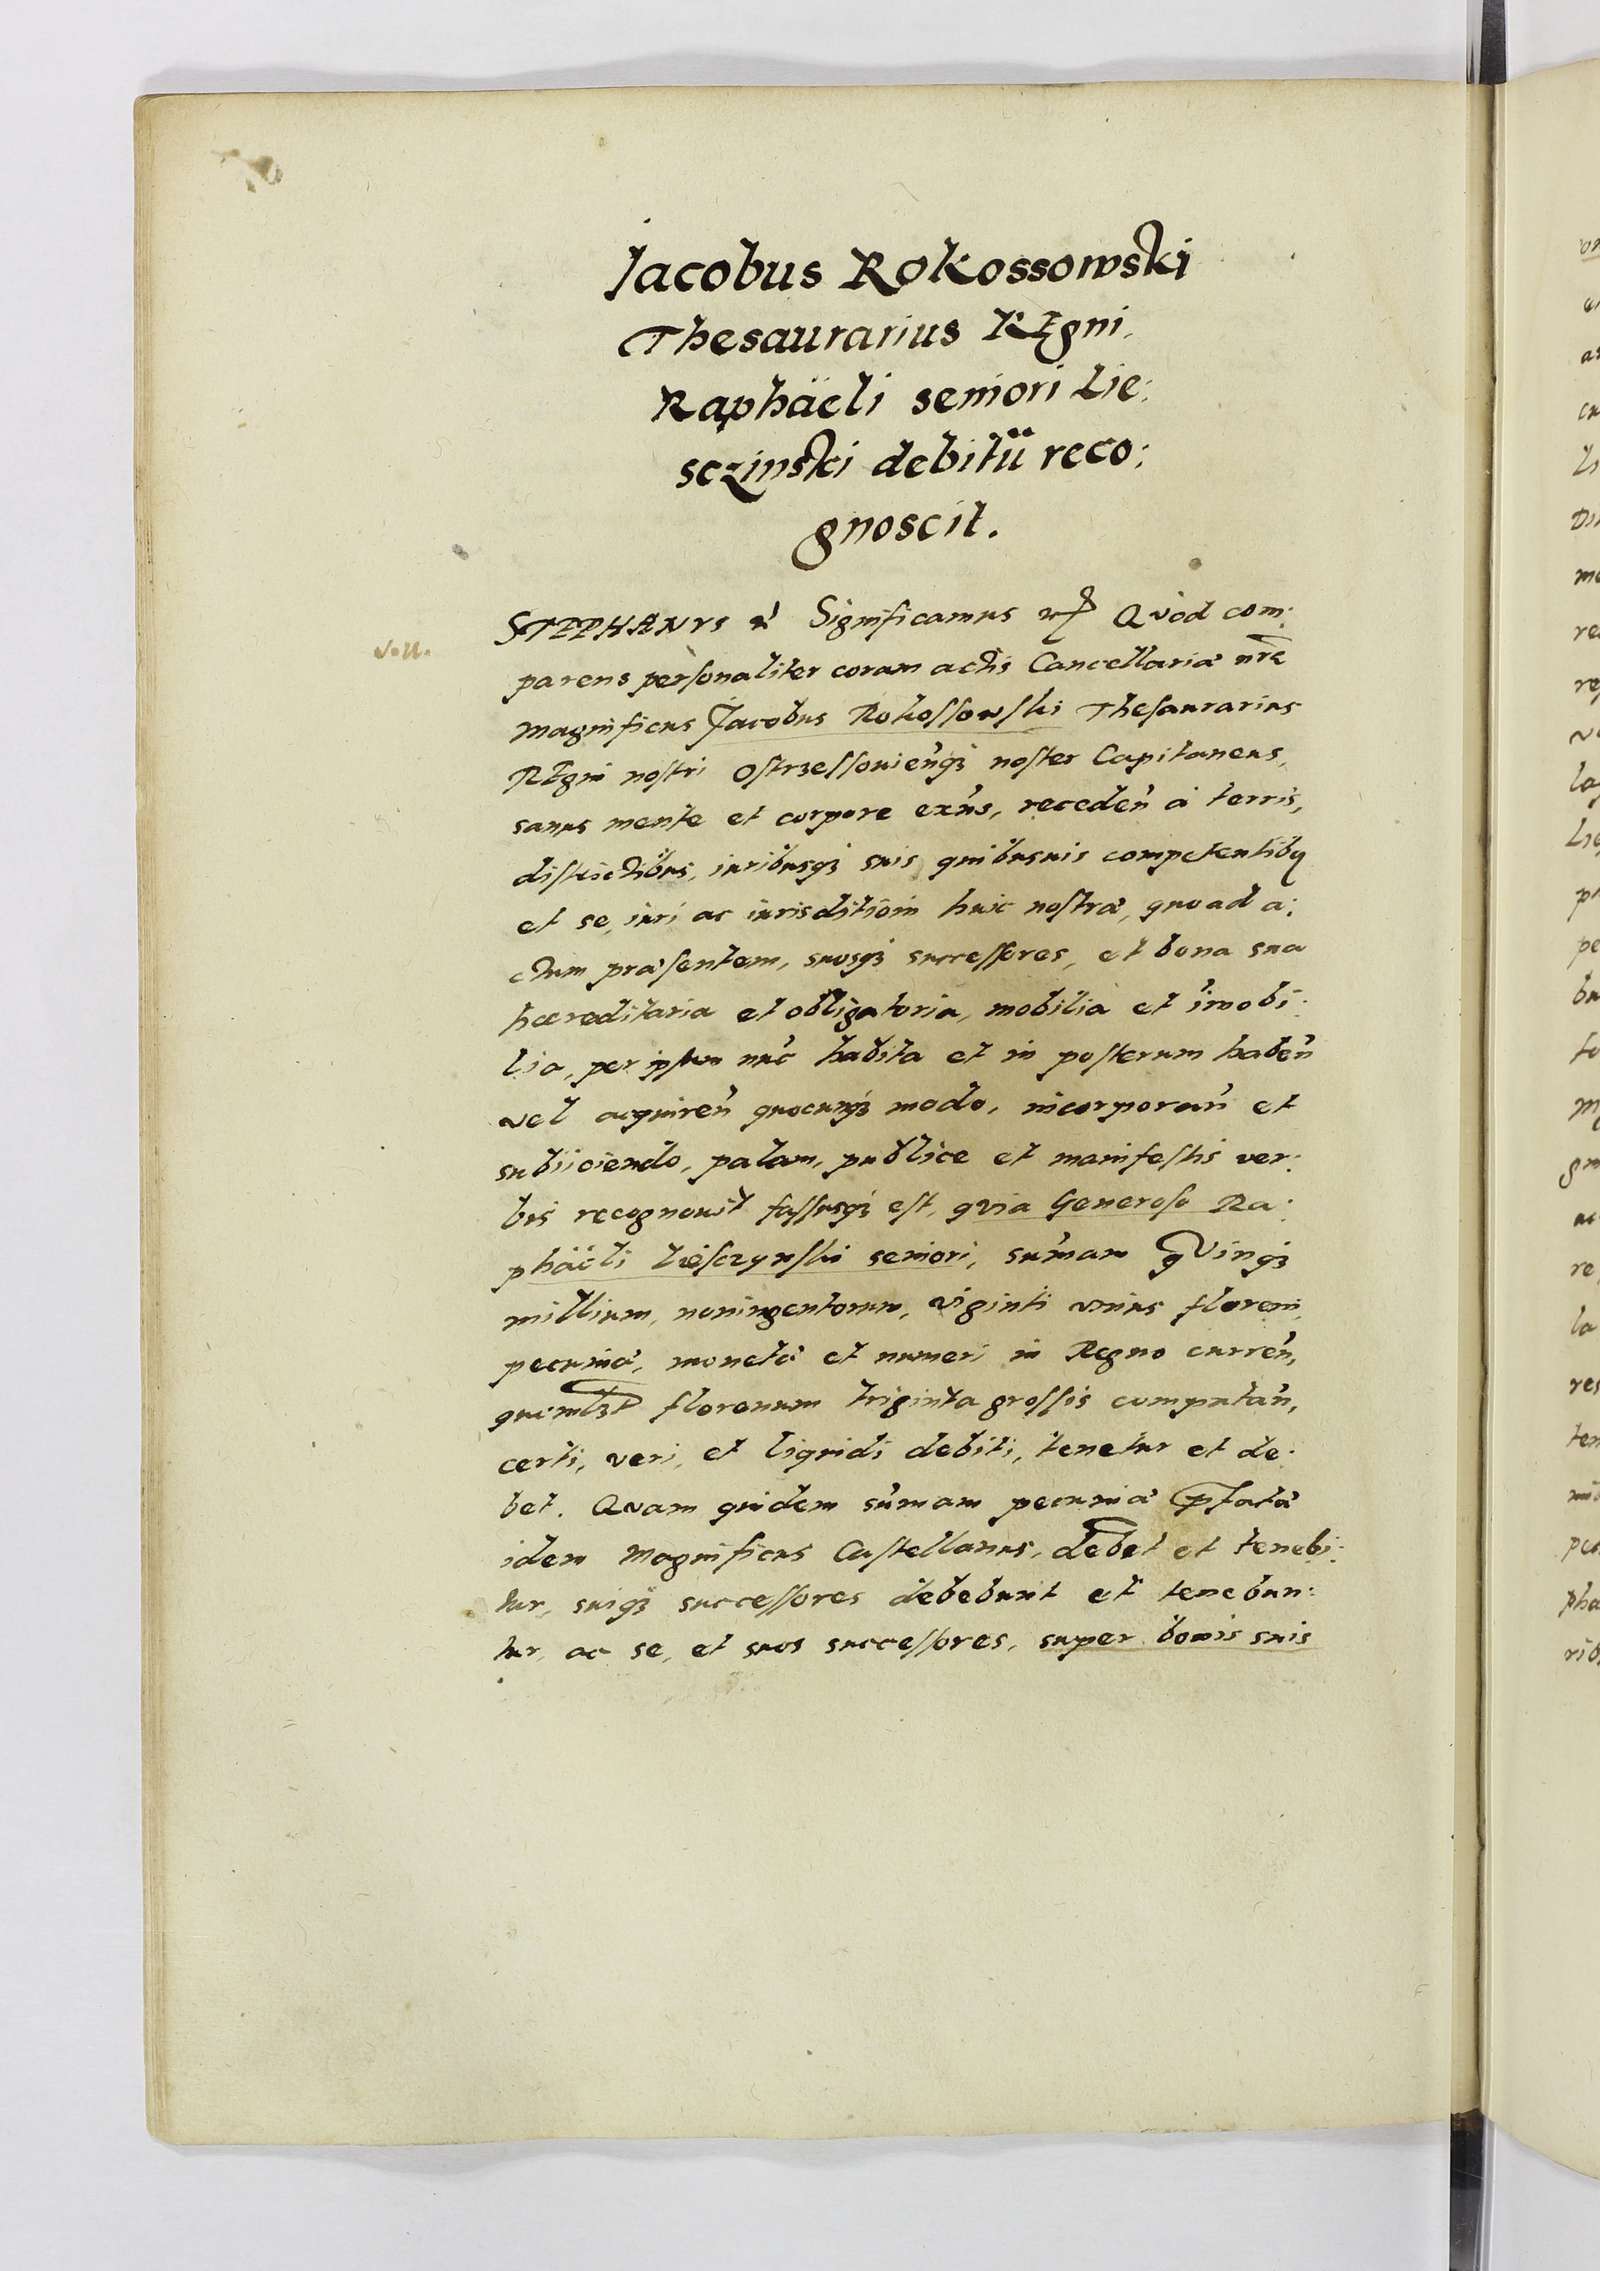 Jacobus Rokossowski
Thesaurarius REgni,
Raphäeli seniori Lie:
sczinski debitū reco:
gnoscit.
STEPHANVS Significamus Quod com:
parens personaliter coram actis Cancellariæ nræ
Magnificus Jacobus Rokossowski Thesaurarius
REgni nostri Ostrzessouienq3 noster Capitaneus,
sanus mente et corpore exns, receden à terris,
districtibus, iuribusq3 suis quibusuis competentibq
et se, iuri ac iurisditioīn huic nostræ, quoad a:
ctum præsentem, suosq3 successores, et bona sua
hæreditaria et obligatoria, mobilia et imobi:
lia, per ipsum nuc habita et in posterum haben
vel acquiren quocunq3 modo, incorporan et
subiiciendo, palam, publice et manifestis ver:
bis recognouit fassusq3 est, qvia Generoso Ra:
phäeli Liesczynski seniori, sumam qVinq3
millium, noningentorum, viginti vnius floreni,
pecuniæ, monetæ et numeri in Regno curren,
quemlzt florenum triginta grossis computan,
certi, veri, et liquidi debiti, tenetur et de:
bet. Qvam quidem sumam pecuniæ pfatæ
idem Magnificus Castellanus, debet et tenebi:
tur, suiq3 successores debebunt et tenebun:
tur, ac se, et suos successores, super bonis suis